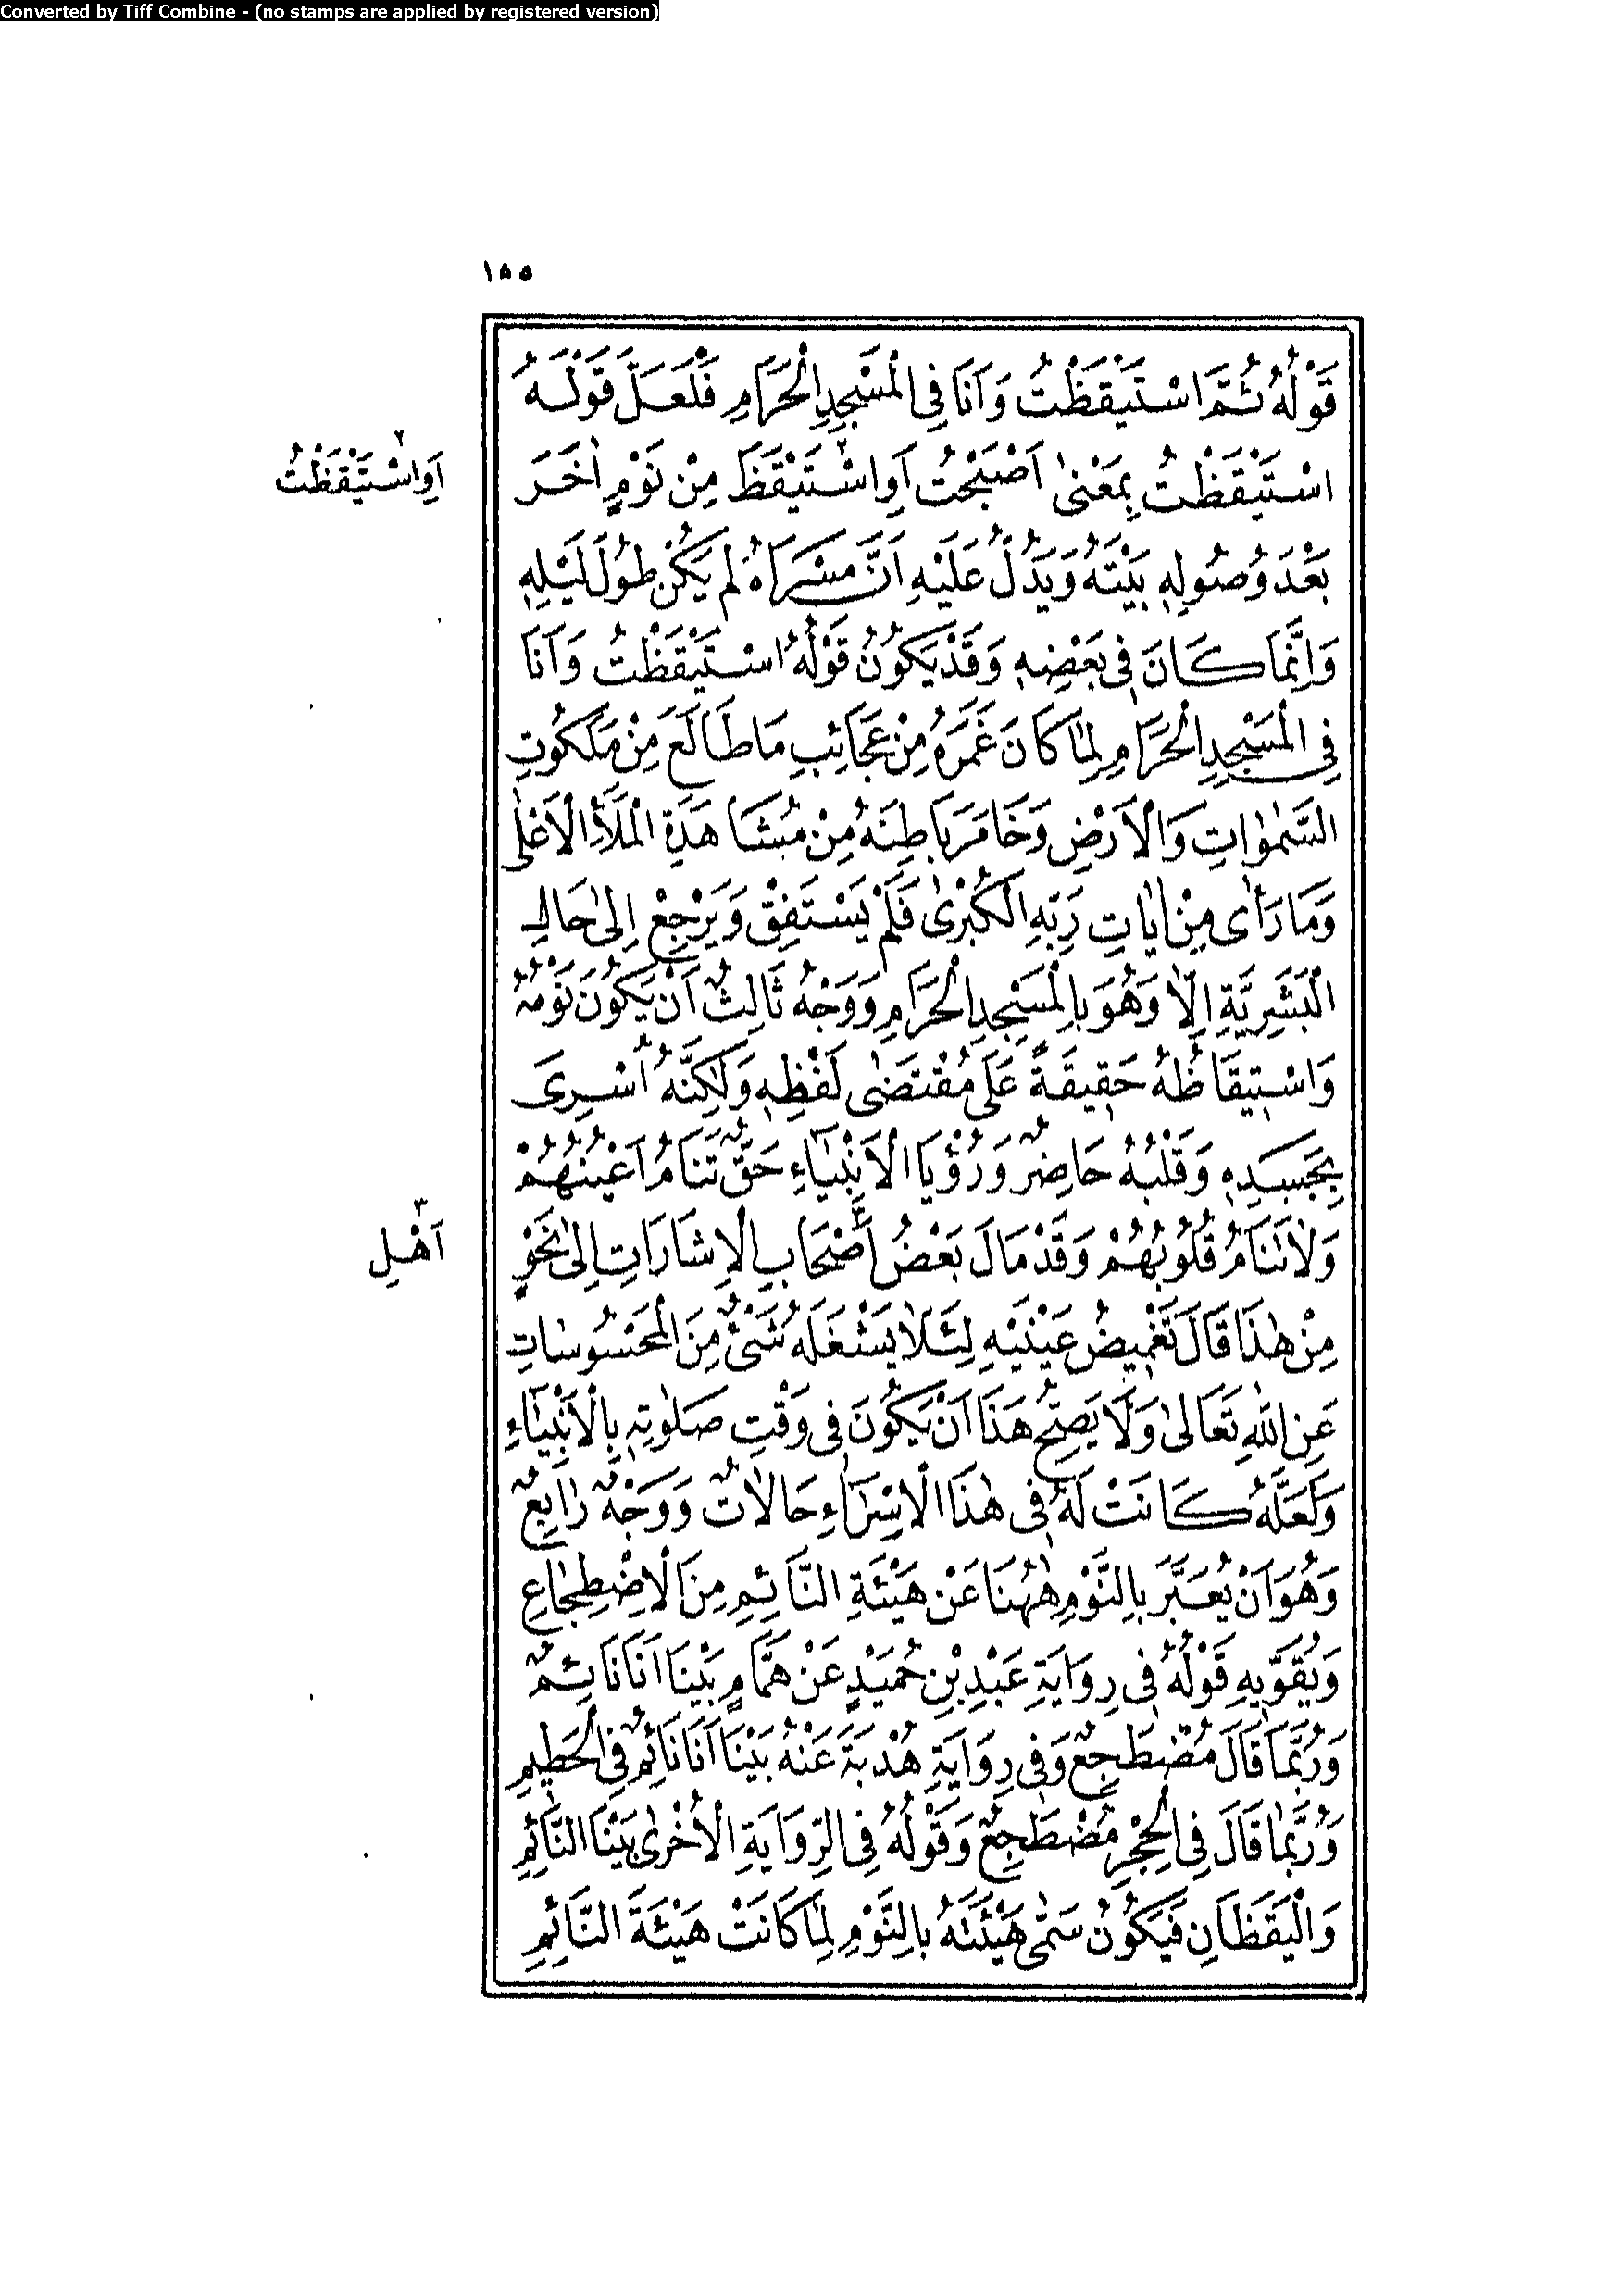 Converted by Tiff Combine - (no stamps are applied by registered version)
١٥٥
قَوْلُهُ ثُمَّ اسْتَيْقَظْتُ وَاَنَا فِى الْمَسْجِدِ الْحَرَامِ فَلَعَلَّ قَوْلَهُ
اسْتَيْقَظْتُ بِمَعْنٰى اَصْبَحْتُ اَوِ اسْتَيْقَظَ مِنْ نَوْمٍ اٰخَرَ
اَوِ اسْتَيْقَظْتُ ٢
بَعْدَ وُصُولِهِ بَيْتَهُ وَيَدُلُّ عَلَيْهِ اَنَّ مَسْرَاهُ لَمْ يَكُنْ طُولَ لَيْلِهِ
وَاِنَّمَا كَانَ فِى بَعْضِهِ وَقَدْ يَكُونُ قَوْلُهُ اسْتَيْقَظْتُ وَاَنَا
فِى الْمَسْجِدِ الْحَرَامِ لِمَا كَانَ غَمَرَهُ مِنْ عَجَائِبِ مَا طَالَعَ مِنْ مَلَكُوتِ
السَّمٰوَاتِ وَالْاَرْضِ وَخَامَرَ بَاطِنَهُ مِنْ مُشَاهَدَةِ الْمَلَأِ الْاَعْلٰى
وَمَا رَأٰى مِنْ اٰيَاتِ رَبِّهِ الْكُبْرٰى فَلَمْ يَسْتَفِقْ وَيَرْجِعْ اِلٰى حَالِ
الْبَشَرِيَّةِ اِلَّا وَهُوَ بِالْمَسْجِدِ الْحَرَامِ وَوَجْهٌ ثَالِثٌ اَنْ يَكُونَ نَوْمُهُ
وَاسْتِيقَاظُهُ حَقِيقَةً عَلٰى مُقْتَضٰى لَفْظِهِ وَلٰكِنَّهُ اُسْرِىَ
بِجَسَدِهِ وَقَلْبُهُ حَاضِرٌ وَرُؤْيَا الْاَنْبِيَاءِ حَقٌّ تَنَامُ اَعْيُنُهُمْ
وَلَا تَنَامُ قُلُوبُهُمْ وَقَدْ مَالَ بَعْضُ اَصْحَابِ الْاِشَارَاتِ اِلٰى نَحْوٍ
اَهْلِ ٣
مِنْ هٰذَا قَالَ تَغْمِيضُ عَيْنَيْهِ لِئَلَّا يَشْغَلَهُ شَىْءٌ مِنَ الْمَحْسُوسَاتِ
عَنِ اللّٰهِ تَعَالٰى وَلَا يَصِحُّ هٰذَا اَنْ يَكُونَ فِى وَقْتِ صَلٰوتِهِ بِالْاَنْبِيَاءِ
وَلَعَلَّهُ كَانَتْ لَهُ فِى هٰذَا الْاِسْرَاءِ حَالَاتٌ وَوَجْهٌ رَابِعٌ
وَهُوَ اَنْ يُعَبَّرَ بِالنَّوْمِ هٰهُنَا عَنْ هَيْئَةِ النَّائِمِ مِنَ الْاِضْطِجَاعِ
وَيُقَوِّيهِ قَوْلُهُ فِى رِوَايَةِ عَبْدِ بْنِ حُمَيْدٍ عَنْ هَمَّامٍ بَيْنَا اَنَا نَائِمٌ
وَرُبَّمَا قَالَ مُضْطَجِعٌ وَفِى رِوَايَةِ هُدْبَةَ عَنْهُ بَيْنَا اَنَا نَائِمٌ فِى الْحَطِيمِ
وَرُبَّمَا قَالَ فِى الْحِجْرِ مُضْطَجِعٌ وَقَوْلُهُ فِى الرِّوَايَةِ الْاُخْرٰى بَيْنَ النَّائِمِ
وَالْيَقَظَانِ فَيَكُونُ سَمّٰى هَيْئَتَهُ بِالنَّوْمِ لِمَا كَانَتْ هَيْئَةَ النَّائِمِ